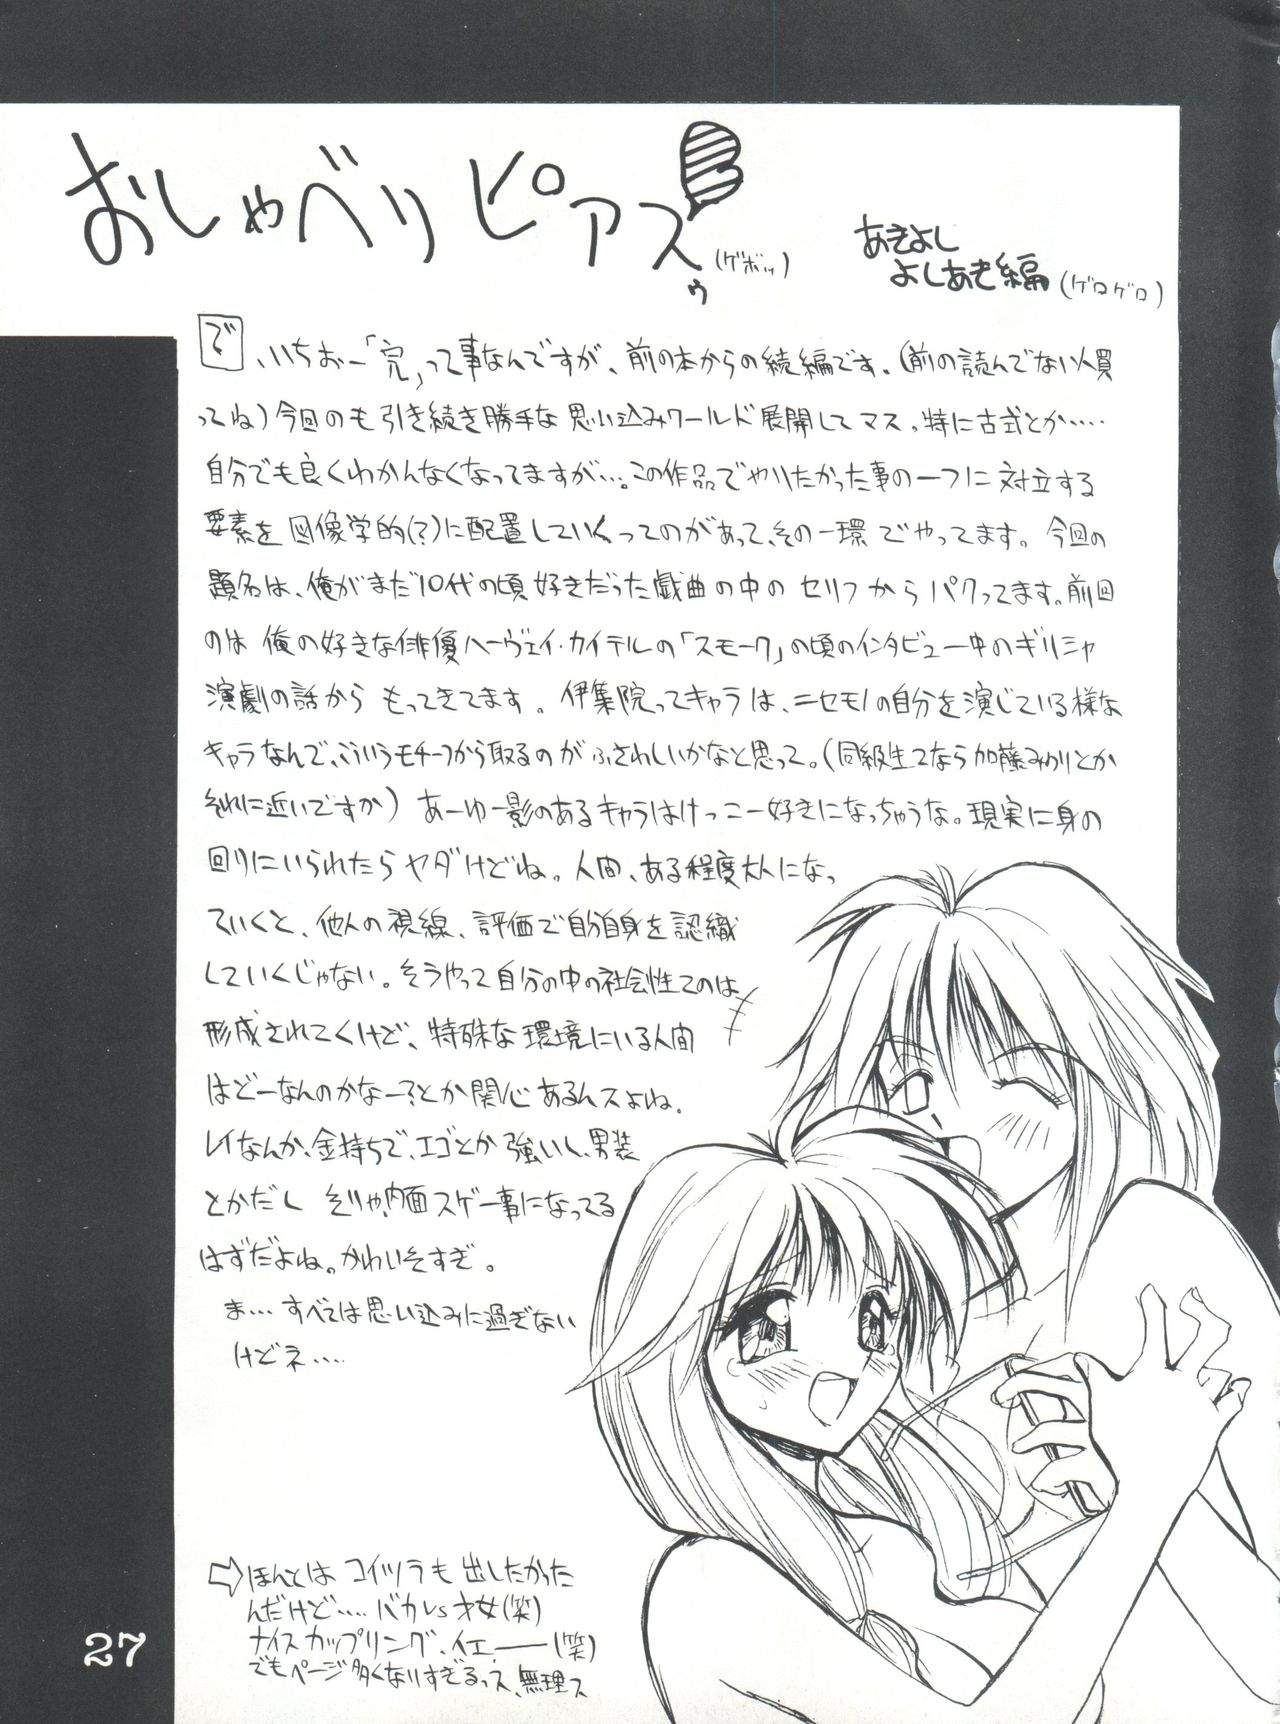 おしゃべりピアスゥ
(ゲボッ)
あきよし
よしあき編(ゲロゲロ)
で、いちおー「完」って事なんですが、前の本からの続編です。(前の読んでない人買
ってね)今回のも引き続き勝手な思い込みワールド展開してマス。特に古式とか‥‥‥
自分でも良くわかんなくなってますが…。この作品でやりたかった事の一つに対立する
要素を図像学的(?)に配置していくってのがあって、その一環でやってます。今回の
題名は、俺がまだ10代の頃好きだった戯曲の中のセリフからパクってます。前回
のは俺の好きな俳優ハーヴェイ・カイテルの「スモーク」の頃のインタビュー中のギリシャ
演劇の話からもってきてます。伊集院ってキャラは、ニセモノの自分を演じている様な
キャラなんで、こういうモチーフから取るのがふさわしいかなと思って。(同級生2なら加藤みのりとか
それに近いですか)あーゆー影のあるキャラはけっこー好きになっちゃうな。現実に身の
回りにいられたらヤダけどね。人間、ある程度大人になっ
ていくと、他人の視線、評価で自分自身を認識
していくじゃない。そうやって自分の中の社会性てのは
形成されてくけど、特殊な環境にいる人間
はどーなんのかなー?とか関心あるんスよね。
レイなんか、金持ちで、エゴとか強いし、男装
とかだし そりゃ内面スゲー事になってる
はずだよね。かわいそすぎ。
ま…すべては思い込みに過ぎない
けどネ‥‥
⇨ほんとはコイツラも出したかった
んだけど‥‥バカvs才女(笑)
ナイスカップリング、イエ——(笑)
でもページ多くなりすぎるっス、無理ス
27